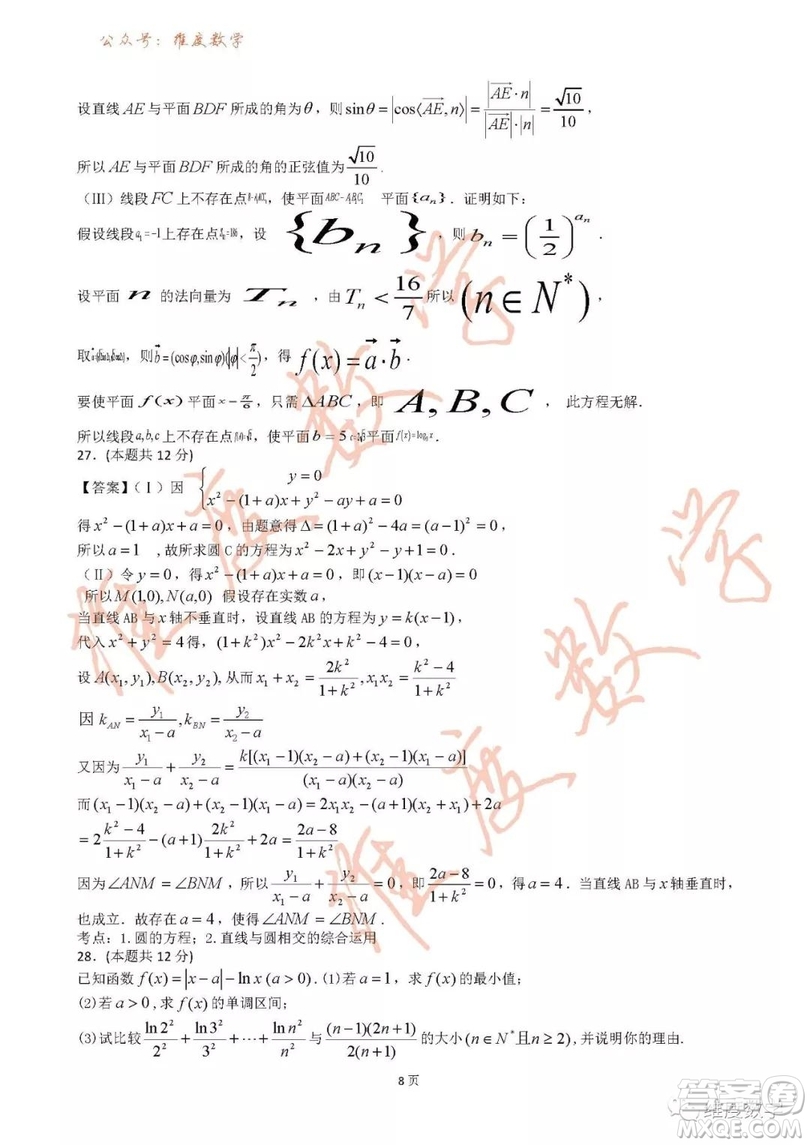 公众号：维度数学
设直线 AE 与平面 BDF 所成的角为θ，则 sinθ = |cos⟨AE, n⟩| = |AE · n| / |AE| · |n| = √10 / 10，
所以 AE 与平面 BDF 所成的角的正弦值为 √10 / 10．
（III）线段 FC 上不存在点，使平面 平面{aₙ}．证明如下：
假设线段a₁=-1上存在点，设 {bₙ}，则 bₙ = (1/2)^(aₙ)．
设平面 n 的法向量为 Tₙ，由 Tₙ < 16/7 所以 (n∈N*)，
取，则 b = (cosφ,sinφ)(|φ|<π/2)，得 f(x) = a·b．
要使平面 f(x) 平面 x = π/6，只需 ΔABC，即 A, B, C， 此方程无解．
所以线段a,b,c上不存在点，使平面 b = 5 平面
27．(本题共 12 分)
【答案】（Ⅰ）因 { y = 0
x² − (1+a)x + y² − ay + a = 0
得 x² − (1+a)x + a = 0，由题意得 Δ = (1+a)² − 4a = (a−1)² = 0，
所以 a = 1 ，故所求圆 C 的方程为 x² − 2x + y² − y + 1 = 0．
（Ⅱ）令 y = 0，得 x² − (1+a)x + a = 0，即 (x−1)(x−a) = 0
所以 M(1,0), N(a,0) 假设存在实数 a，
当直线 AB 与 x 轴不垂直时，设直线 AB 的方程为 y = k(x−1)，
代入 x² + y² = 4 得，(1+k²)x² − 2k²x + k² − 4 = 0，
设 A(x₁, y₁), B(x₂, y₂), 从而 x₁ + x₂ = 2k² / (1+k²), x₁x₂ = (k²−4) / (1+k²)
因 k_AN = y₁ / (x₁−a), k_BN = y₂ / (x₂−a)
又因为 y₁ / (x₁−a) + y₂ / (x₂−a) = k[(x₁−1)(x₂−a)+(x₂−1)(x₁−a)] / (x₁−a)(x₂−a)
而 (x₁−1)(x₂−a)+(x₂−1)(x₁−a) = 2x₁x₂ − (a+1)(x₂+x₁) + 2a
= 2 (k²−4)/(1+k²) − (a+1) 2k²/(1+k²) + 2a = (2a−8)/(1+k²)
因为∠ANM = ∠BNM，所以 y₁/(x₁−a) + y₂/(x₂−a) = 0，即 (2a−8)/(1+k²) = 0，得 a = 4．当直线 AB 与 x 轴垂直时，
也成立．故存在 a = 4，使得∠ANM = ∠BNM．
考点：1.圆的方程；2.直线与圆相交的综合运用
28．(本题共 12 分)
已知函数 f(x) = |x − a| − ln x (a > 0)．(1)若 a = 1，求 f(x) 的最小值；
(2)若 a > 0，求 f(x) 的单调区间；
(3)试比较 ln2²/2² + ln3²/3² + ⋯ + lnn²/n² 与 (n−1)(2n+1) / 2(n+1) 的大小(n∈N*且n≥2)，并说明你的理由．
维度数学
维度数学
8 页
维度数学
答案圈
MXQE.COM